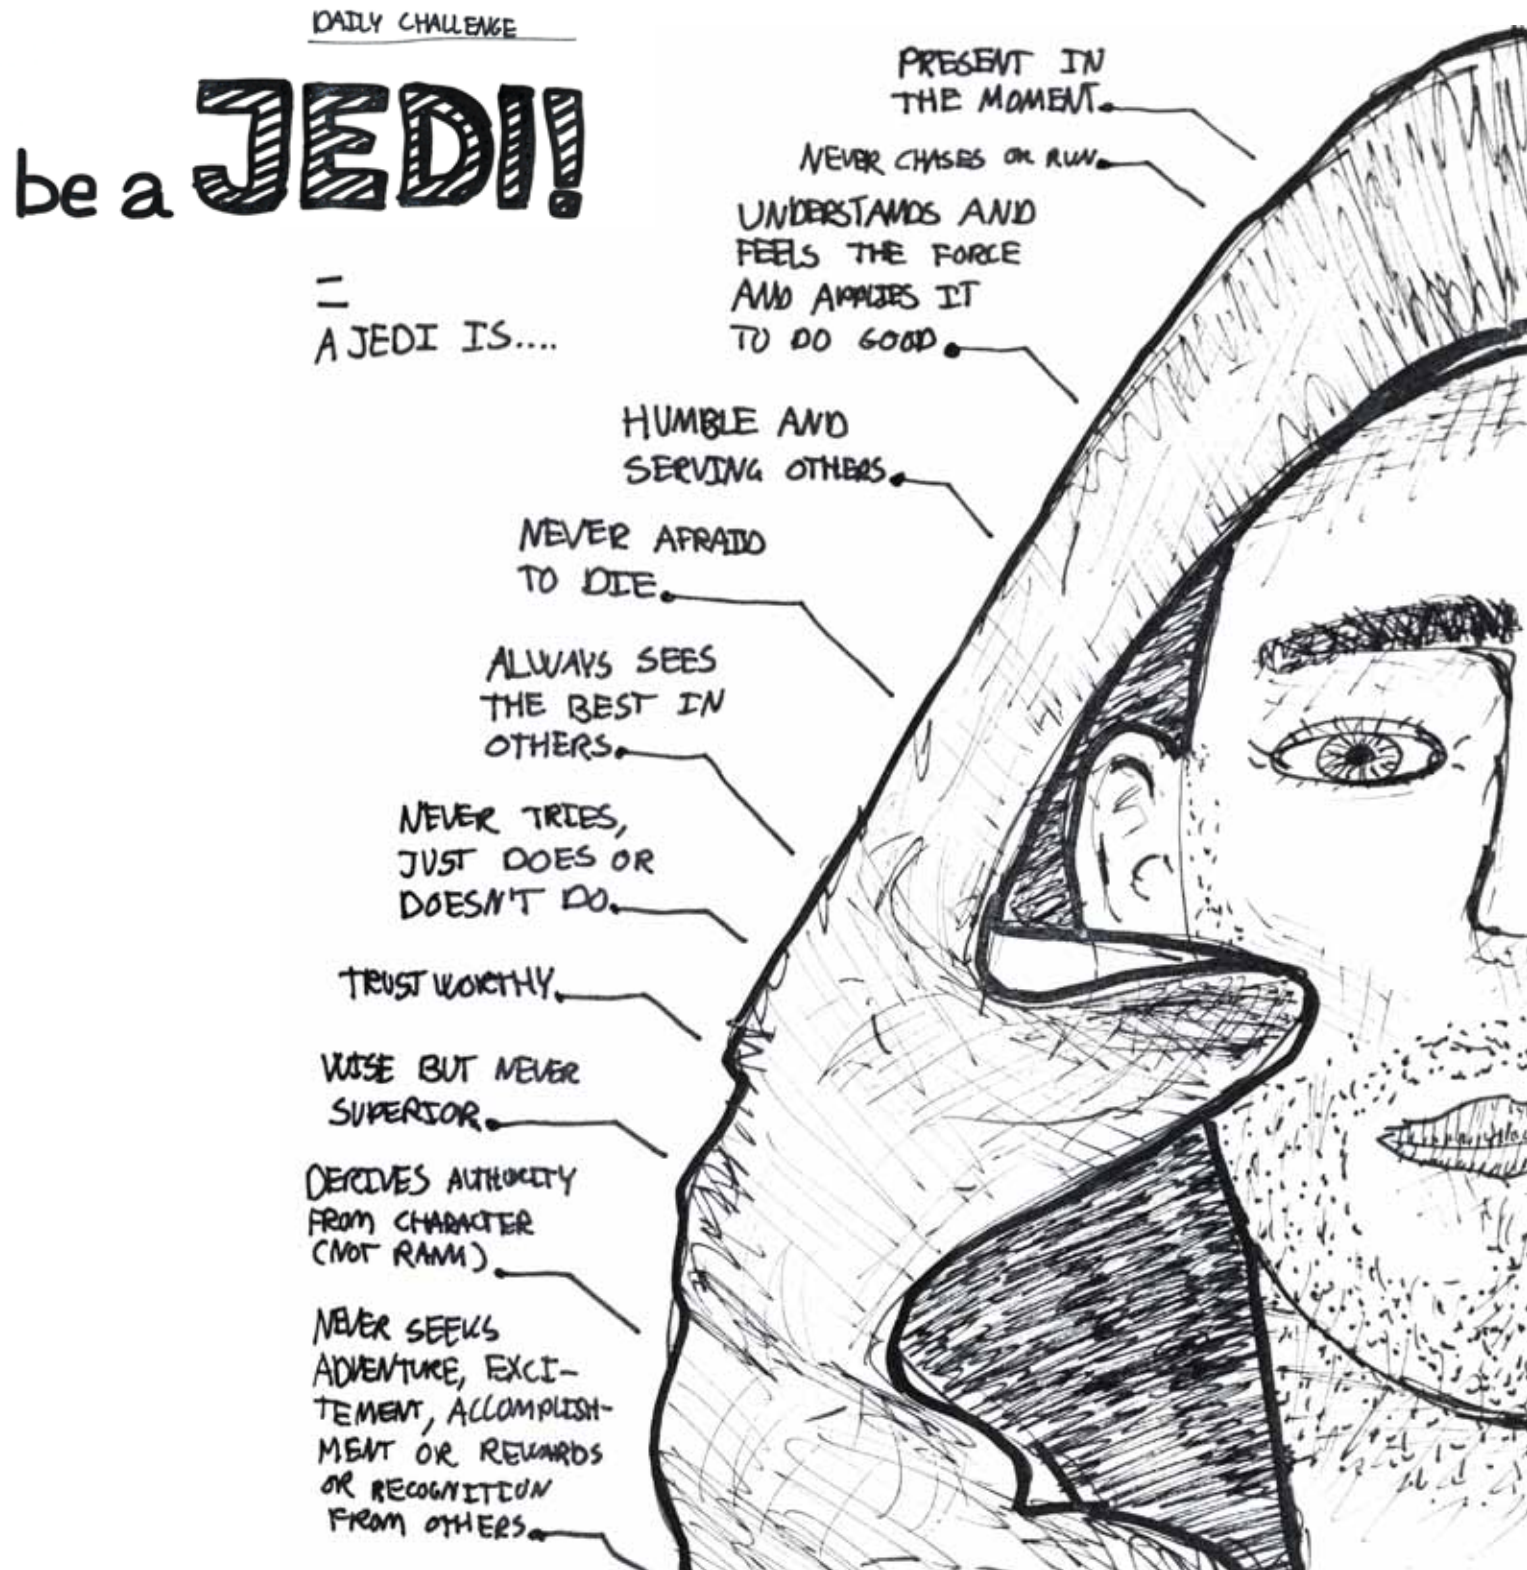 DAILY CHALLENGE
be a JEDI!
A JEDI IS....
PRESENT IN
THE MOMENT
NEVER CHASES OR RUN
UNDERSTANDS AND
FEELS THE FORCE
AND APPLIES IT
TO DO GOOD
HUMBLE AND
SERVING OTHERS
NEVER AFRAID
TO DIE
ALWAYS SEES
THE BEST IN
OTHERS
NEVER TRIES,
JUST DOES OR
DOESN'T DO
TRUSTWORTHY
WISE BUT NEVER
SUPERIOR
DERIVES AUTHORITY
FROM CHARACTER
(NOT RANK)
NEVER SEEKS
ADVENTURE, EXCI-
TEMENT, ACCOMPLISH-
MENT OR REWARDS
OR RECOGNITION
FROM OTHERS